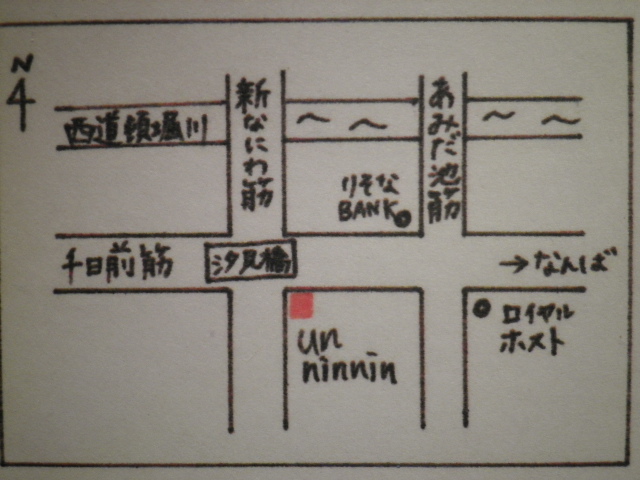 N
新なにわ筋
あみだ池筋
西道頓堀川
りそな
BANK
千日前筋
汐見橋
→なんば
un
ninnin
ロイヤル
ホスト